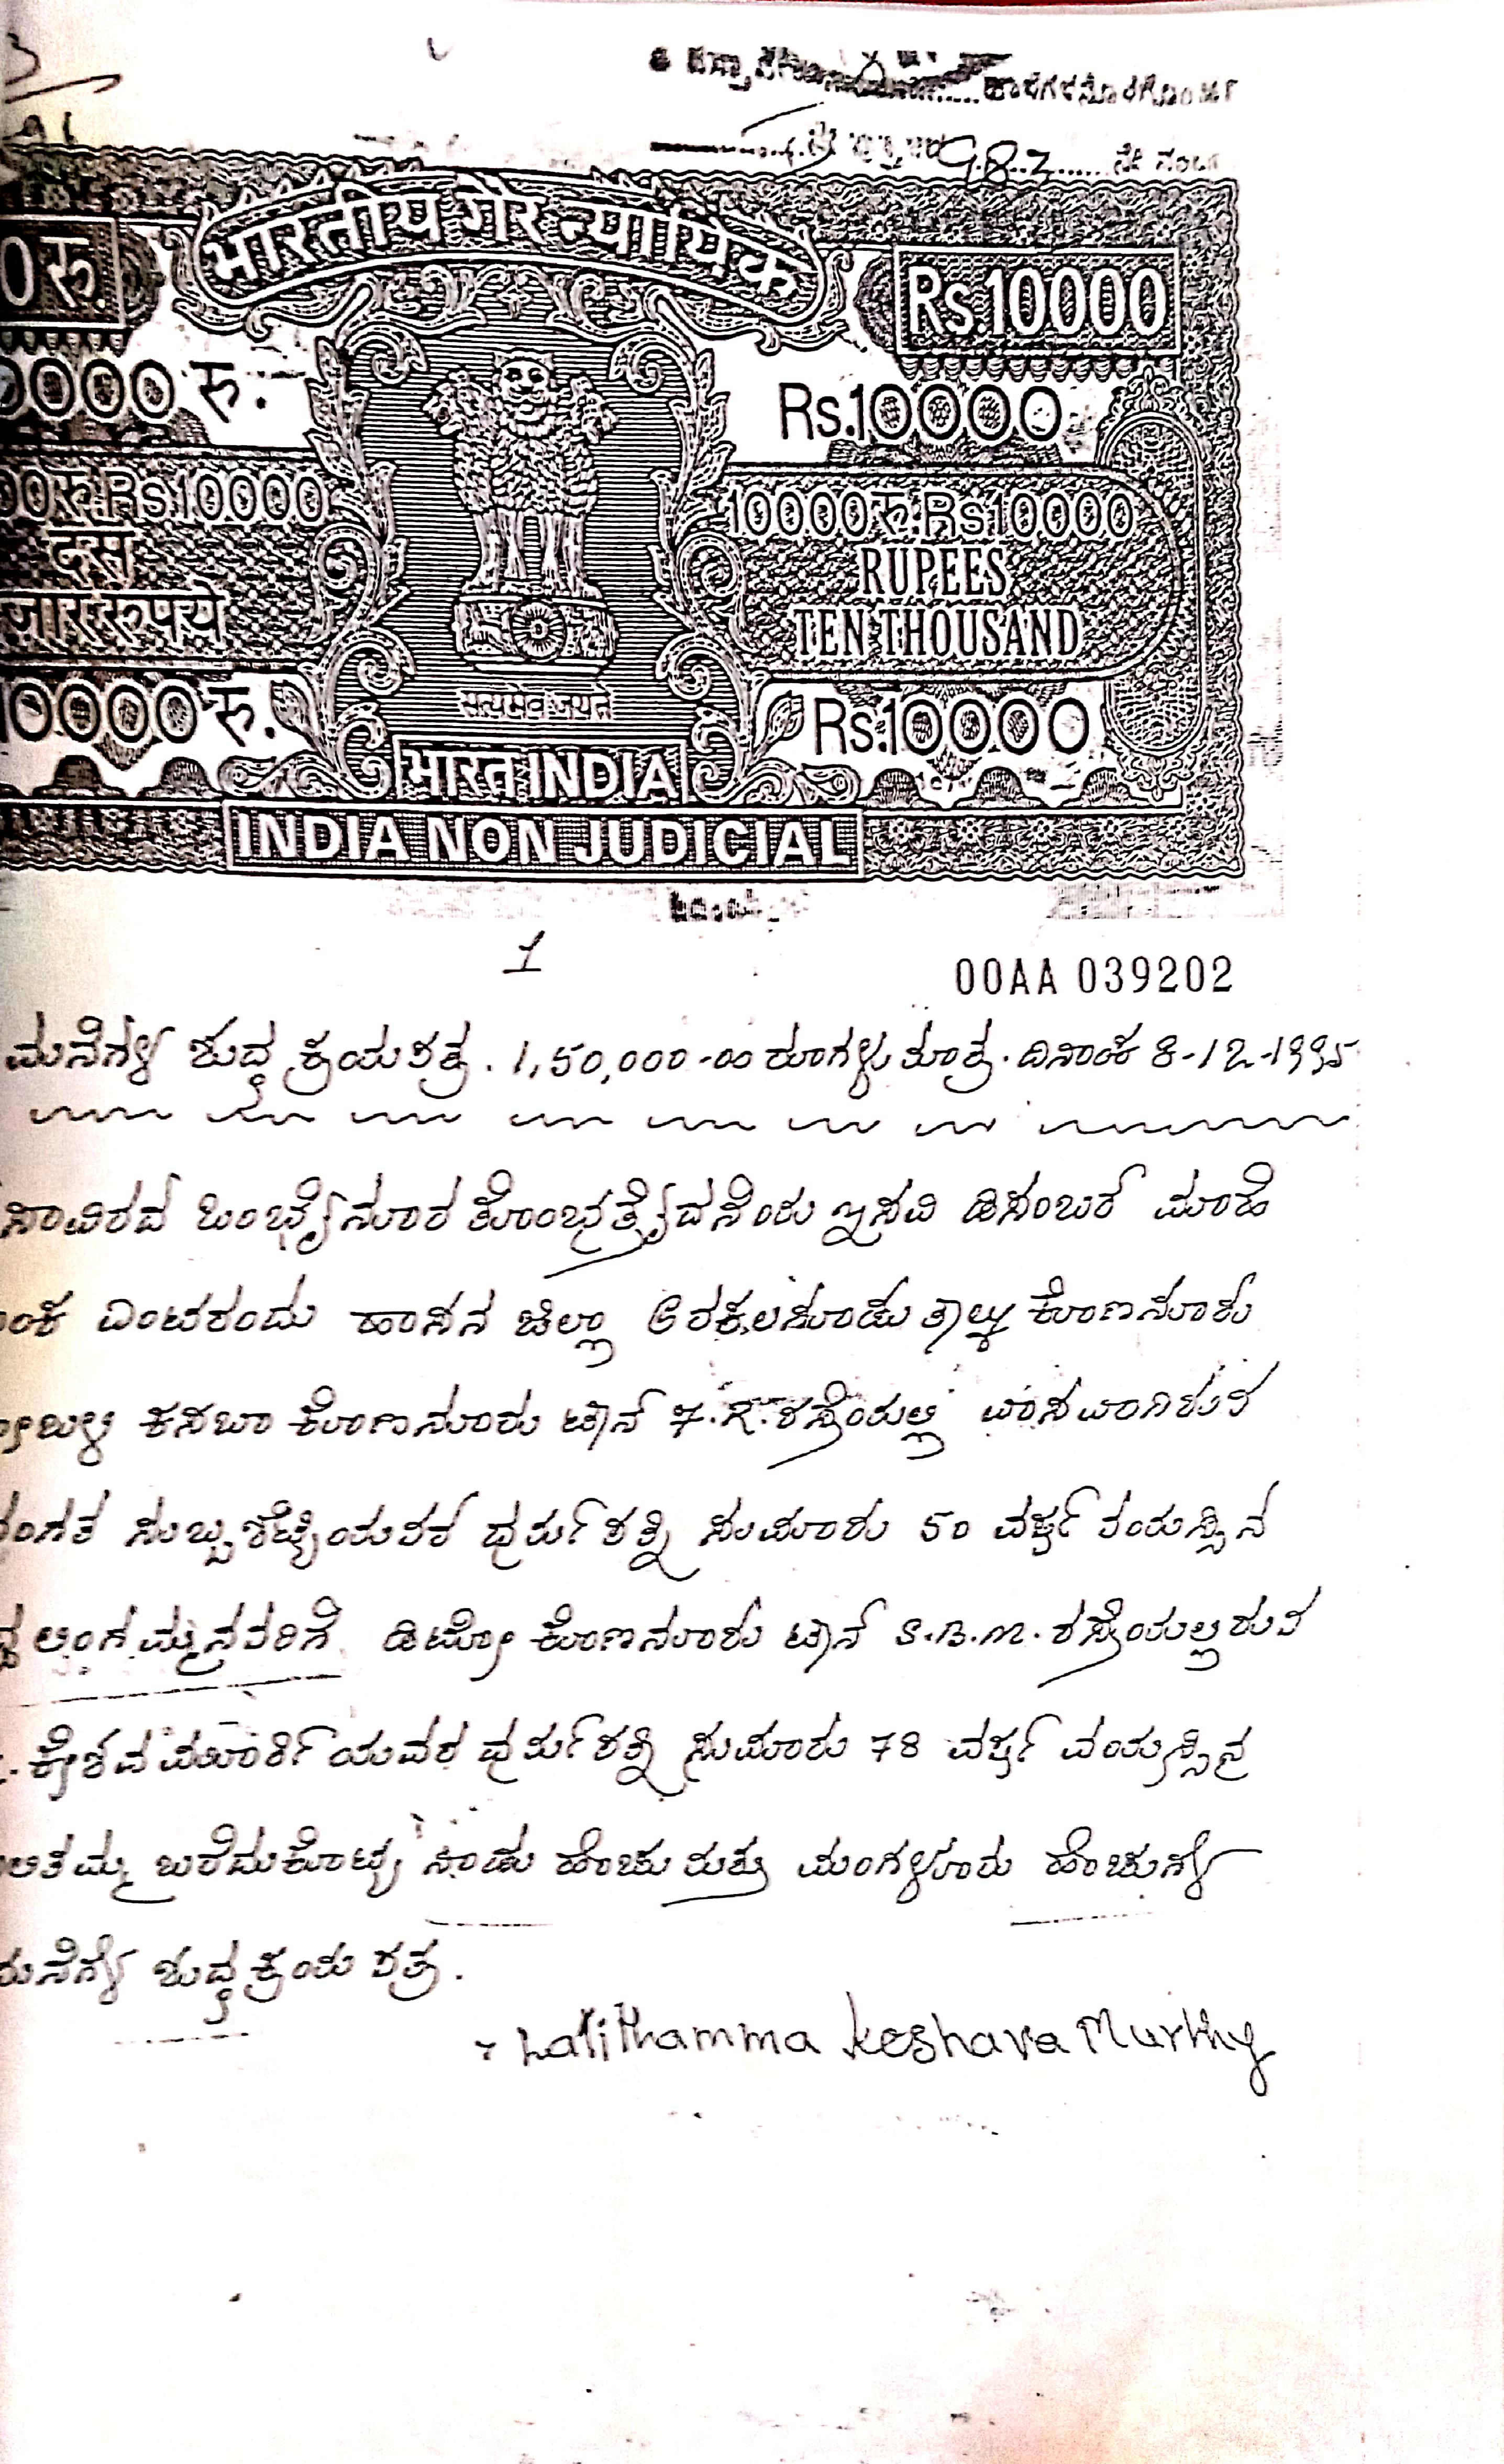 ಹಾಳೆಗಳನ್ನೊಳಗೊಂಡ
982 ನೇ ನಂಬರ
भारतीय गैर न्यायिक
0 रु. Rs.10000
0000 रु. Rs.10000
00रु.Rs.10000 10000रु.Rs.10000
दस RUPEES
जार रुपये TEN THOUSAND
सत्यमेव जयते
10000 रु. Rs.10000
भारत INDIA
INDIA NON JUDICIAL
1
00AA 039202
ಮನೆಗಳ ಶುದ್ಧ ಕ್ರಯಪತ್ರ. 1,50,000-00 ರೂಗಳು ಮಾತ್ರ. ದಿನಾಂಕ 8-12-1995
ಸಾವಿರದ ಒಂಭೈನೂರ ತೊಂಭತ್ತೈದನೆಂಯ ಇಸವಿ ಡಿಸೆಂಬರ್ ಮಾಹೆ
ಂಕ ಎಂಟರಂದು ಹಾಸನ ಜಿಲ್ಲಾ ಅರಕಲಗೂಡು ತಾಲ್ಲೂಕು ಕೊಣನೂರು
ೋಬಳಿ ಕಸಬಾ ಕೊಣನೂರು ಟೌನ್ ರಸ್ತೆಯಲ್ಲಿ ವಾಸವಾಗಿರುವ
ಂಗತ ಸುಬ್ಬಶೆಟ್ಟಿಯವರ ಧರ್ಮಪತ್ನಿ ಸುಮಾರು 50 ವರ್ಷ ವಯಸ್ಸಿನ
ಲಿಂಗಮ್ಮನವರಿಗೆ ಡಿಟ್ಟೋ ಕೊಣನೂರು ಟೌನ್ S.B.M. ರಸ್ತೆಯಲ್ಲಿರುವ
. ಕೇಶವಮೂರ್ತಿಯವರ ಧರ್ಮಪತ್ನಿ ಸುಮಾರು 78 ವರ್ಷ ವಯಸ್ಸಿನ
ಲಿತಮ್ಮ ಬರೆದುಕೊಟ್ಟ ನಾಡು ಹೆಂಚು ಮತ್ತು ಮಂಗಳೂರು ಹೆಂಚುಗಳ
ಮನೆಗಳ ಶುದ್ಧ ಕ್ರಯ ಪತ್ರ.
Lalithamma Keshava Murthy